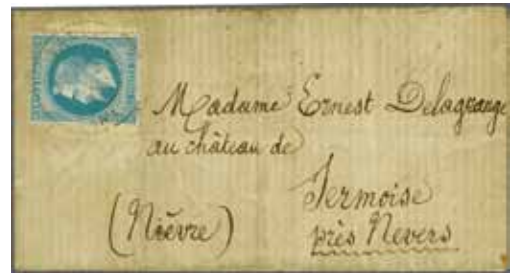 Madame Ernest Delagrange
au château de
Sermoise
(Nièvre) près Nevers